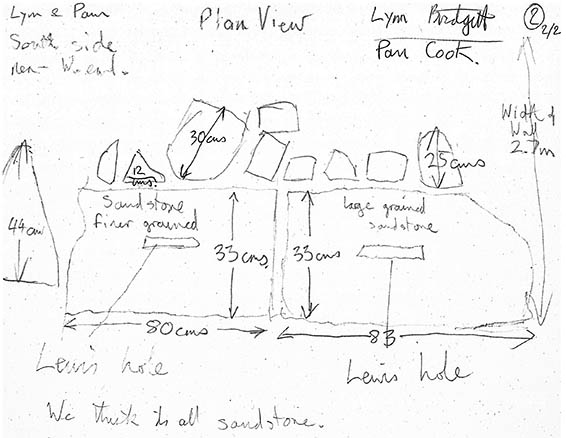 Lyn & Pam
South side
near W. end.
Plan View
Lynn Bridgett
Pam Cook.
2
2/2
Width of
Wall
2.7m
30cms
12
cms.
25cms
44cm
Sandstone
finer grained
33cms
33cms
large grained
sandstone
80cms
83
Lewis hole
Lewis hole
We think its all sandstone.